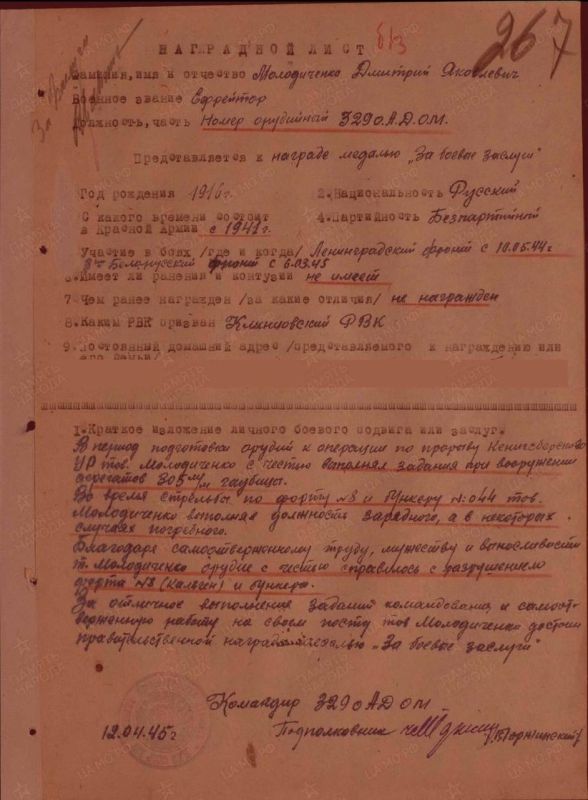 НАГРАДНОЙ ЛИСТ б/з
267
Фамилия, имя и отчество Молодиченко Дмитрий Яковлевич
Военное звание Ефрейтор
Должность, часть Номер орудийный 329 о.А.Д.О.М.
Представляется к награде медалью „За боевые заслуги"
Год рождения 1916 г. 2. Национальность Русский
С какого времени состоит в Красной Армии с 1941 г. 4. Партийность Безпартийный
Участие в боях /где и когда/ Ленинградский фронт с 10.05.44 г.
Белорусский фронт с 6.03.45
6. Имеет ли ранения и контузии не имеет
7. Чем ранее награжден /за какие отличия/ не награжден
8. Каким РВК призван Клинцовский РВК
9. Постоянный домашний адрес /представляемого к награждению или
его семьи/
1. Краткое изложение личного боевого подвига или заслуг.
В период подготовки орудий к операции по прорыву Кенигсбергского
УР тов. Молодиченко с честью выполнял задания при вооружении
агрегатов 305 м/м гаубицы.
Во время стрельбы по форту №8 и бункеру №044 тов.
Молодиченко выполнял должность зарядного, а в некоторых
случаях погребного.
Благодаря самоотверженному труду, мужеству и выносливости
т. Молодиченко орудие с честью справилось с разрушением
форта №8 (Кальген) и бункера.
За отличное выполнение заданий командования и самоот-
верженную работу на своем посту тов Молодиченко достоин
правительственной награды медалью „За боевые заслуги"
Командир 329 о А Д О М
12.04.45 г Подполковник